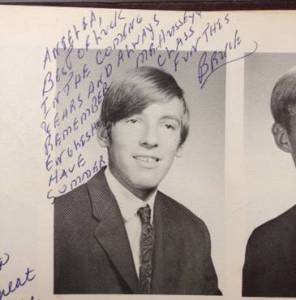 BEST OF LUCK
IN THE COMING
YEARS AND ALWAYS
REMEMBER
ENGLISH CLASS
HAVE FUN THIS
SUMMER
BRUCE
neat